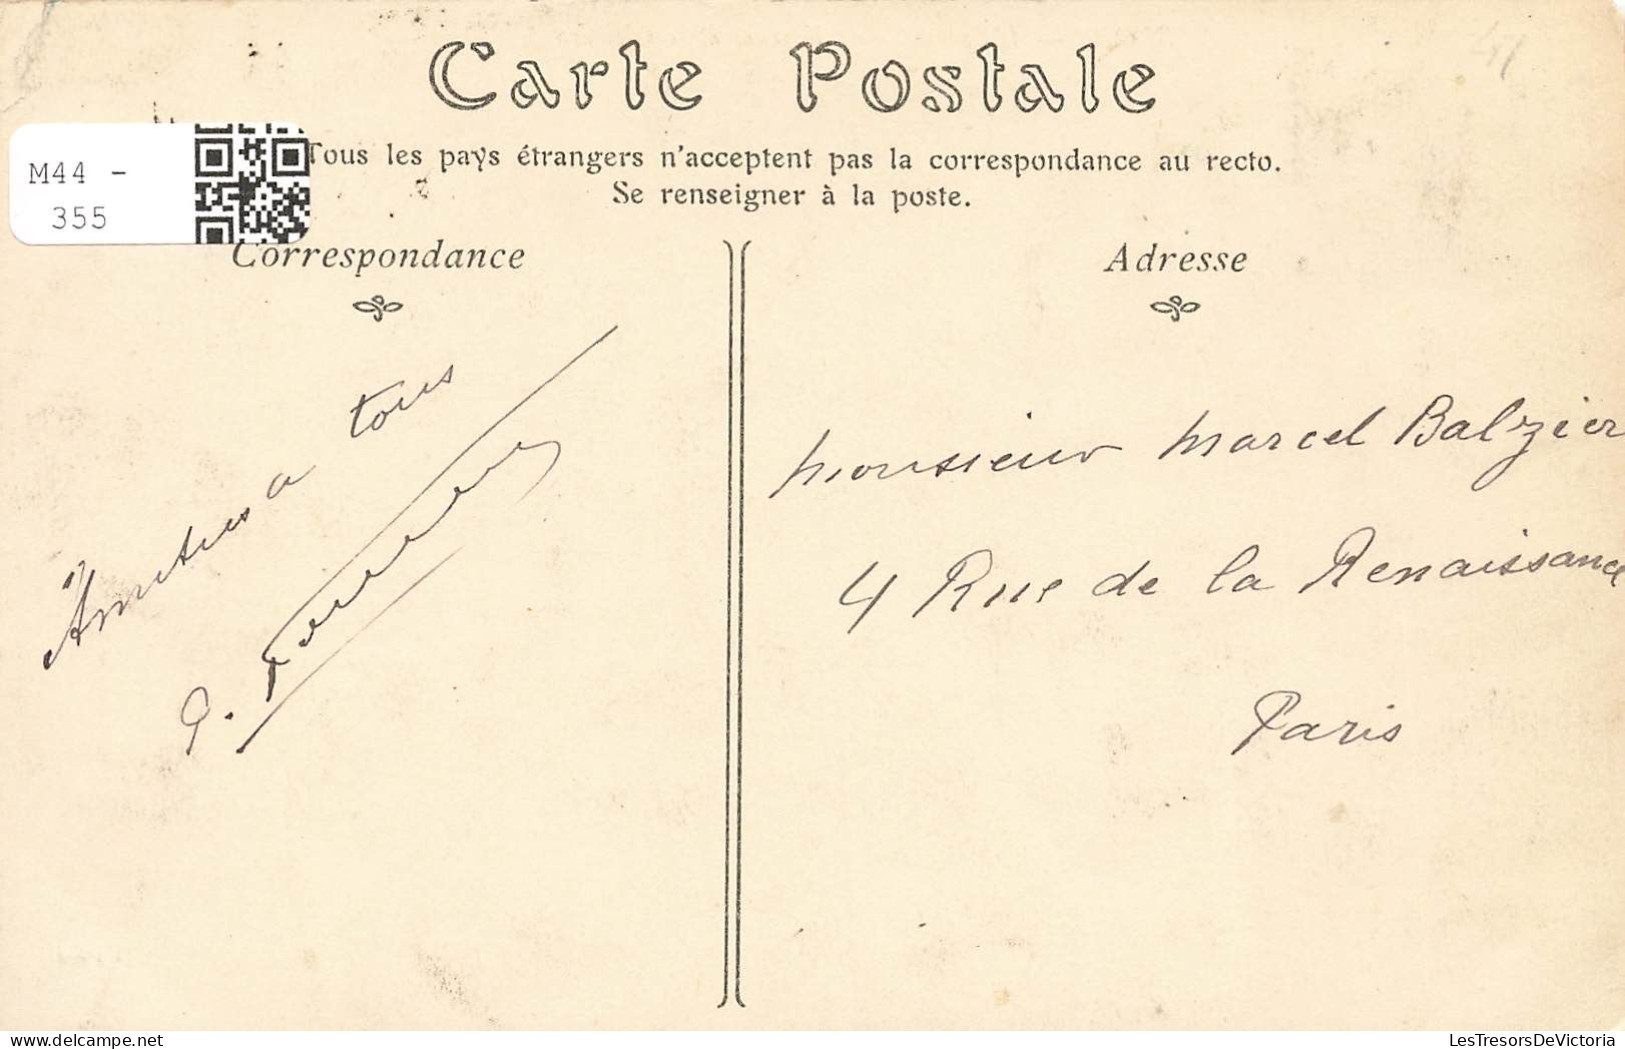 Carte Postale
Tous les pays étrangers n'acceptent pas la correspondance au recto.
Se renseigner à la poste.
M44 -
355
Correspondance
Amitiés a tous
Adresse
Monsieur Marcel Balzier
4 Rue de la Renaissance
Paris
LesTresorsDeVictoria